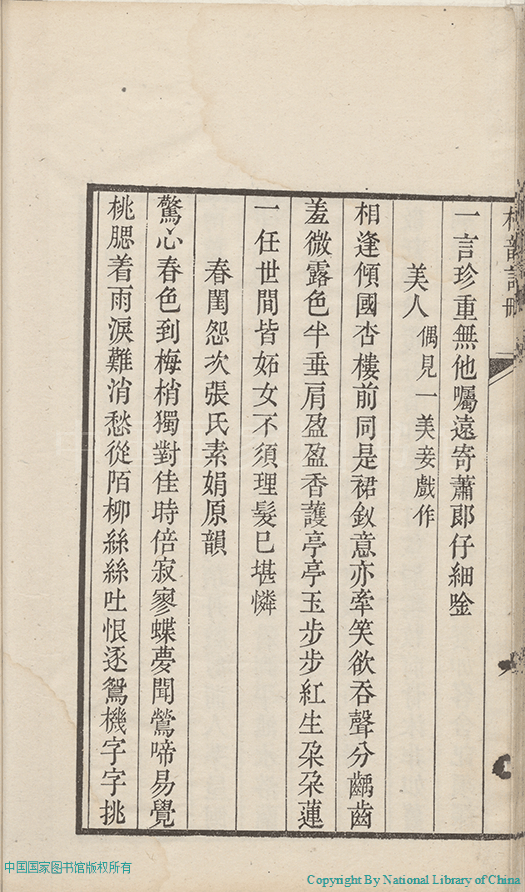 一言珍重無他囑遠寄蕭郞仔細唫
美人 偶見一美妾戲作
相逢傾國杏樓前同是裙釵意亦牽笑欲吞聲分齲齒
羞微露色半垂肩盈盈香䕶亭亭玉步步紅生朶朶蓮
一任世間皆妬女不須理髮已堪憐
春閨怨次張氏素娟原韻
驚心春色到梅梢獨對佳時倍寂寥蝶夢聞鶯啼易覺
桃腮着雨淚難消愁從陌柳絲絲吐恨逐鴛機字字挑
中国国家图书馆版权所有
Copyright By National Library of China